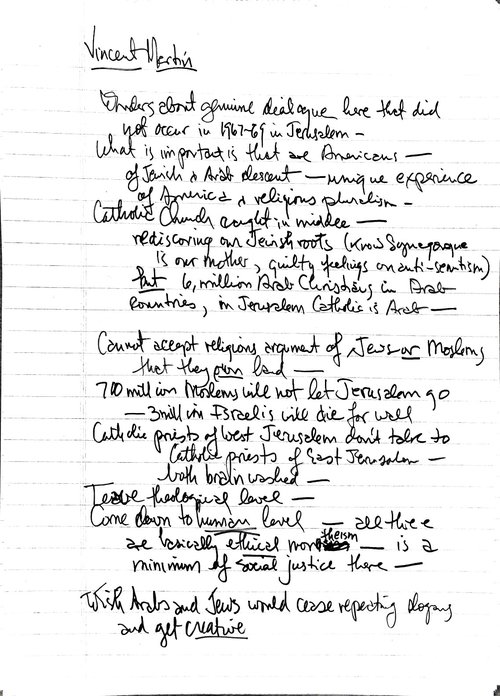 Vincent Martin
Wonders about genuine dialogue here that did
not occur in 1967-69 in Jerusalem —
What is important is that are Americans —
of Jewish & Arab descent — unique experience
of America & religious pluralism —
Catholic Church caught in middle —
rediscoring our Jewish roots (know Synagogue
is our mother, guilty feelings on anti-semitism)
but 6, million Arab Christians in Arab
countries, in Jerusalem Catholic is Arab —
Cannot accept religious argument of Jews or Moslems
that they own land —
700 million Moslems will not let Jerusalem go
— 3 million Israelis will die for wall
Catholic priests of West Jerusalem don't talk to
Catholic priests of East Jerusalem —
both brain washed —
Leave theological level —
Come down to human level — all three
are basically ethical monotheism — is a
minimum of social justice there —
Wish Arabs and Jews would cease repeating slogans
and get creative